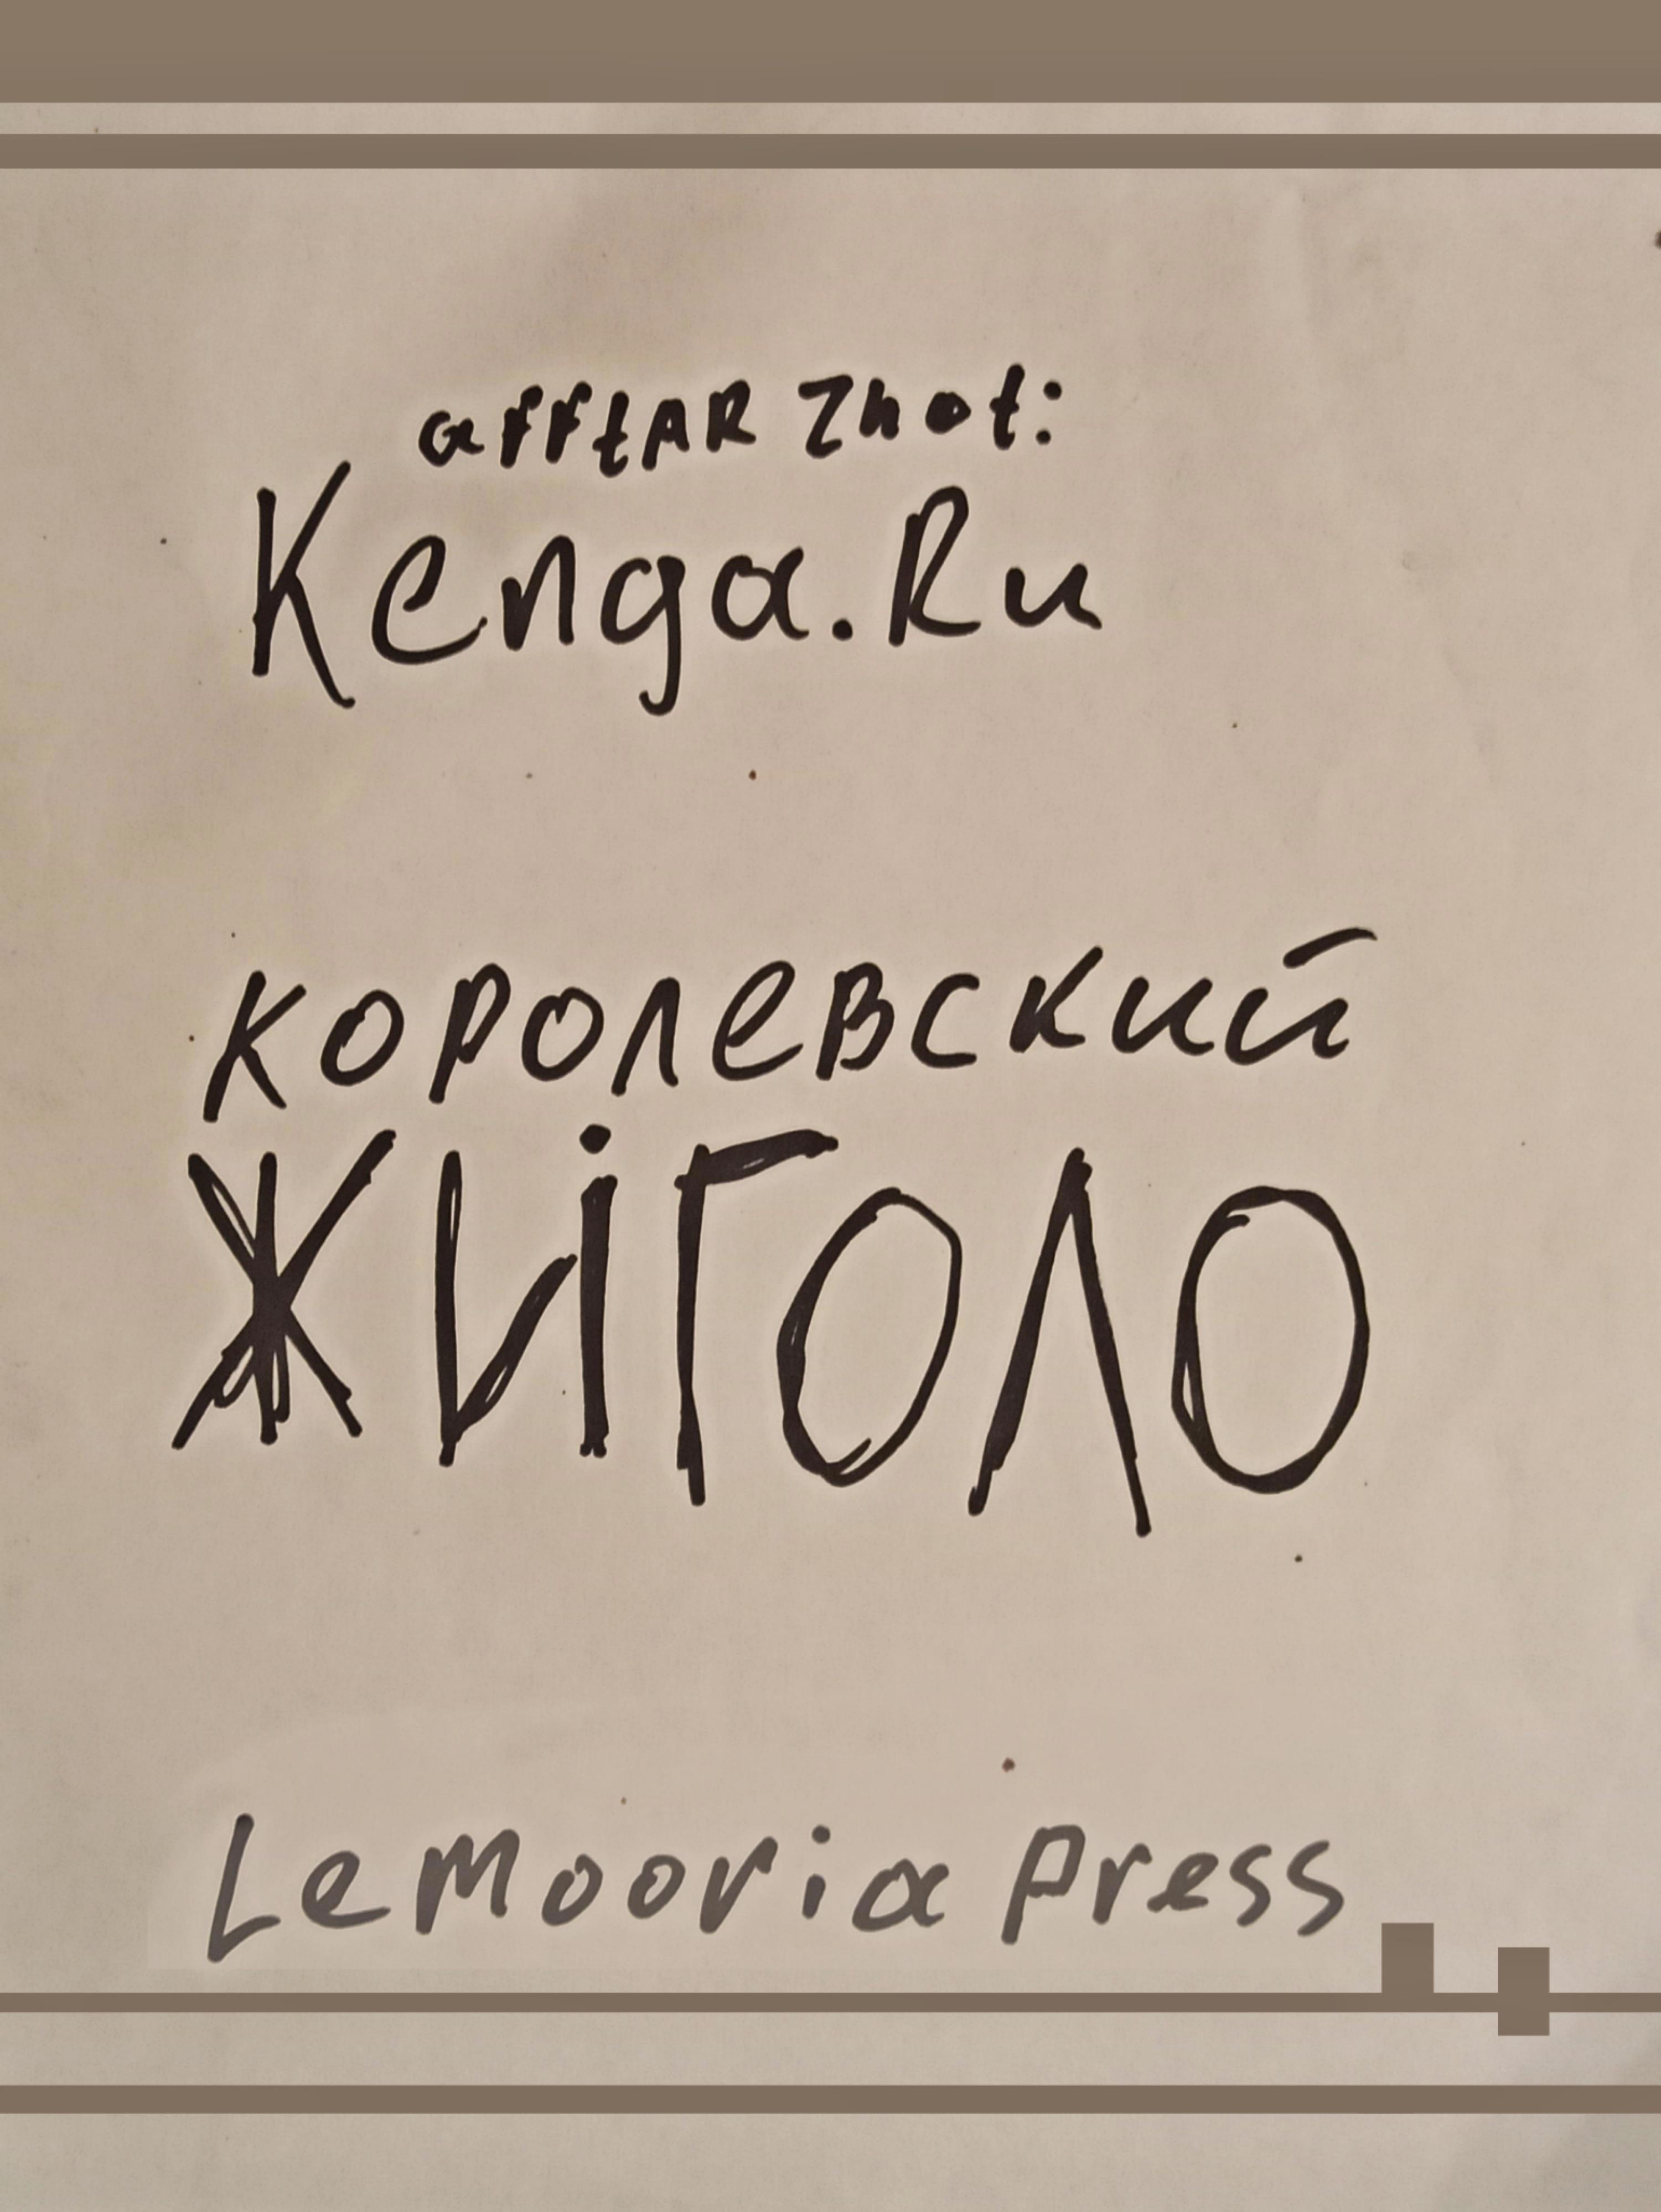 afftAR Zhot:
Kenga.Ru
королевский
ЖИГОЛО
LeMooria Press